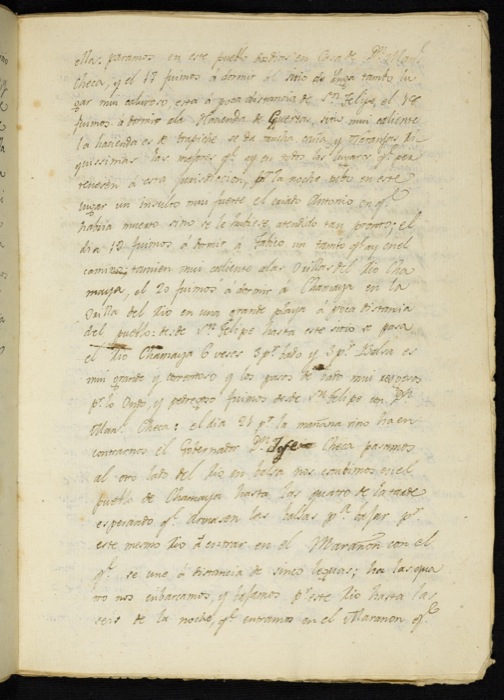 ellas, paramos en este pueblo dos dias en Casa de Dn. Man.l
Checa, y el 17 fuimos á dormir al sitio de tanto lu
gar mui caluroso, esta á poca distancia de Sn. Felipe, el 18
fuimos a dormir ala Hacienda de sitio mui caliente
la hacienda es de trapiche se da mucha caña, y Naranjas ri
quissimas las mejores q.e ay en todos los lugares q.e per
tenesen á esta jurisdicion, pr. la noche dieo en este
lugar un insulto mui fuerte el cuado Antonio en q.e
habria muerto sino se le hubiese atendido tan pronto; el
dia 19 fuimos á dormir á un tanto q.e ay en el
camino, tamien mui caliente alas Orillas del Rio Cha
maya, el 20 fuimos á dormir á Chamaya en la
Orilla del Rio en una grande playa á poca distancia
del pueblo: desde Sn. Felipe hasta este sitio se pasa
el Rio Chamaya 6 veses 3 pr. bado y 3 pr. Balsa es
mui grande y correntoso y los pasos de bado mui
pr. lo Ondo, y pedregoso fuimos desde Sn. Felipe con Dn.
Man.l Checa: el dia 21 pr. la mañana vino ha en
contrarnos el Gobernador Dn. Josse Checa pasamos
al otro lado del Rio en balsa nos estubimos en el
pueblo de Chamaya hasta las quatro de la tarde
esperando q.e armasen las balsas pa. bajar pr.
este mesmo Rio á entrar en el Marañon con el
q.e se une á distancia de sinco leguas; ha las qua
tro nos enbarcamos, y bajamos pr. este Rio hasta las
seis de la noche, q.e entramos en el Marañon q.e